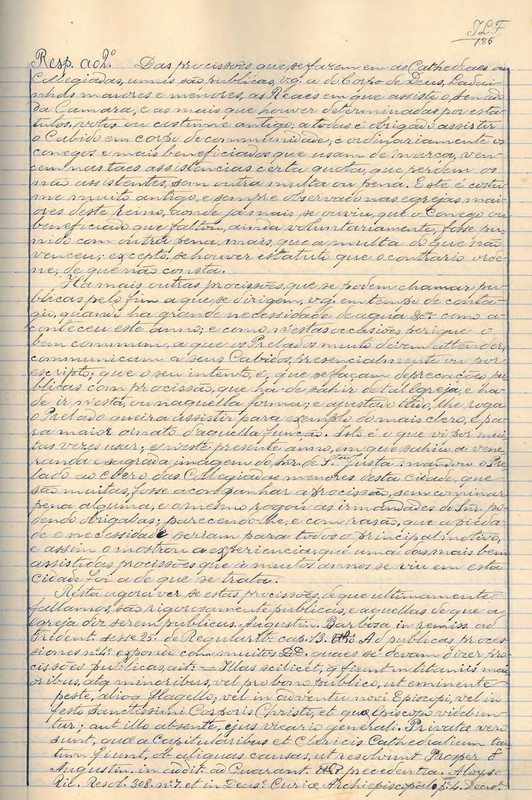 JLF
186
Resp. ao 2º Das procissões que se fazem em as Cathedraes ou
Collegiadas, umas são publicas, v.g. a do Corpo de Deus, Ladai-
nhas maiores e menores, as Reaes em que assiste o Senado
da Camara, e as mais que houver determinadas por esta-
tutos, votos ou costume antigo, a todas é obrigado assistir
o Cabido em corpo de communidade, e ordinariamente os
conegos e mais beneficiados que usam de murça, ven-
cem nas taes assistencias certa quota, que perdem os
não assistentes, sem outra multa ou pena. Este é costu-
me muito antigo, e sempre observado nas egrejas mai-
ores deste Reino, aonde já mais se ouviu, que o Conego ou
beneficiado que faltou, ainda voluntariamente, fosse pu-
nido com outra pena, mais, que a multa do que não
venceu; excepto, se houver estatuto que o contrario orde-
ne, de que não consta.
Ha mais outras procissões, que se podem chamar pu-
blicas pelo fim a que se dirigem, v.g. em tempo de conta-
gio, quando ha grande necessidade de agua &c. como a-
conteceu este anno; e como n'estas occasiões perigue o
bem commum, a que os Prelados muito devem attender,
communicam a seus Cabidos, presencialmente ou por
escripto; que o seu intento, é, que se façam deprecações pu-
blicas com procissão, que ha de sahir de tal Egreja, e ha-
de ir n'esta, ou naquella forma; e ajustado tudo, lhe roga
o Prelado queira assistir para exemplo do mais clero, e pa-
ra maior ornato d'aquella funcção. Isto é o que vi por mui-
tas vezes usar; e n'este presente anno, em que sahiu a vene-
randa e sagrada imagem do Snr. de Stª Justa mandou o Pre-
lado ao clero das Collegiadas menores desta cidade, que
são muitas, fosse acompanhar a procissão, sem cominar
pena alguma, e o mesmo rogou as irmandades do Snr. po-
dendo obrigalas; parecendo-lhe, e com rasão, que a pieda-
de e necessidade seriam para todos o principal motivo,
e assim o mostrou a experiencia; que uma das mais bem
assistidas procissões que a muitos annos se viu em esta
cidade foi a de que se trata.
Resta agora ver se estas procissões, de que ultimamente
fallamos, são rigorosamente publicas, e aquellas de que a
Igreja diz serem publicas. Augustin. Barboza in remiss. ad
trident. sess. 25. de Regularib. cap. 13. Ad publicas proces-
siones nº 1. expondo com muitos DD. quaes se devam dizer Pro-
cissões publicas, ait = Illas scilicet, q fiunt in litaniis mai-
oribus, atq. minoribus, vel pro bono publico, ut eminente
peste, alioq. flagello; vel in adventu novi Episcopi, vel in
festo Sanctissimi Corporis Christi, et quæ Episcopo videbun-
tur; aut illo absente, ejus vicario generali. Privatæ vero
sunt, quæ a Capitularibus et Clericis Cathedralium tan-
tum fiunt, ob aliquas causas, ut resolvunt Prosper &
Augustin. in addit. ad Quarant. precedentia. Aloys.
Ril. Resol. 308. nº 7. et in Decis. Curiæ Archiepiscopal. p. 4. Decis.